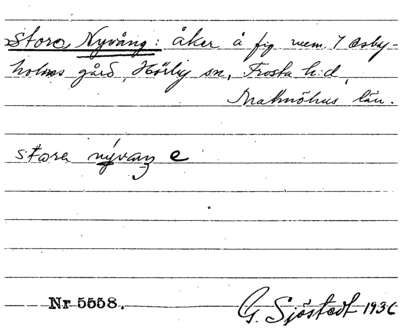 Stora Nyvång: åker å fig. num. 7 Osby-
holms gård, Hörby sn, Frosta h:d,
Malmöhus län.
stora nývaŋ e
Nr 5558.
G. Sjöstedt 1936